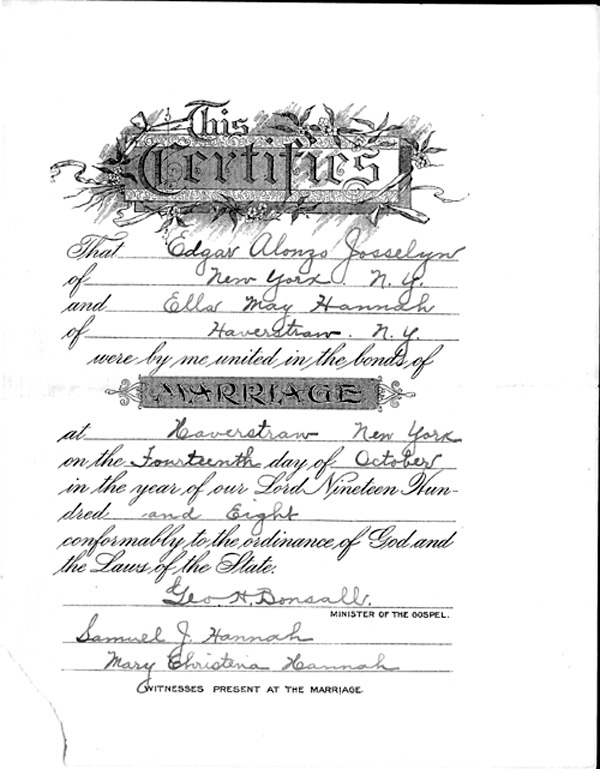 This
Certifies
That Edgar Alonzo Josselyn
of New York. N.Y.
and Ella May Hannah
of Haverstraw. N.Y.
were by me united in the bonds of
MARRIAGE
at Haverstraw New York
on the Fourteenth day of October
in the year of our Lord Nineteen Hun-
dred and Eight
conformably to the ordinance of God and
the Laws of the State.
Geo. H. Bonsall.
MINISTER OF THE GOSPEL.
Samuel J. Hannah
Mary Christena Hannah
WITNESSES PRESENT AT THE MARRIAGE.